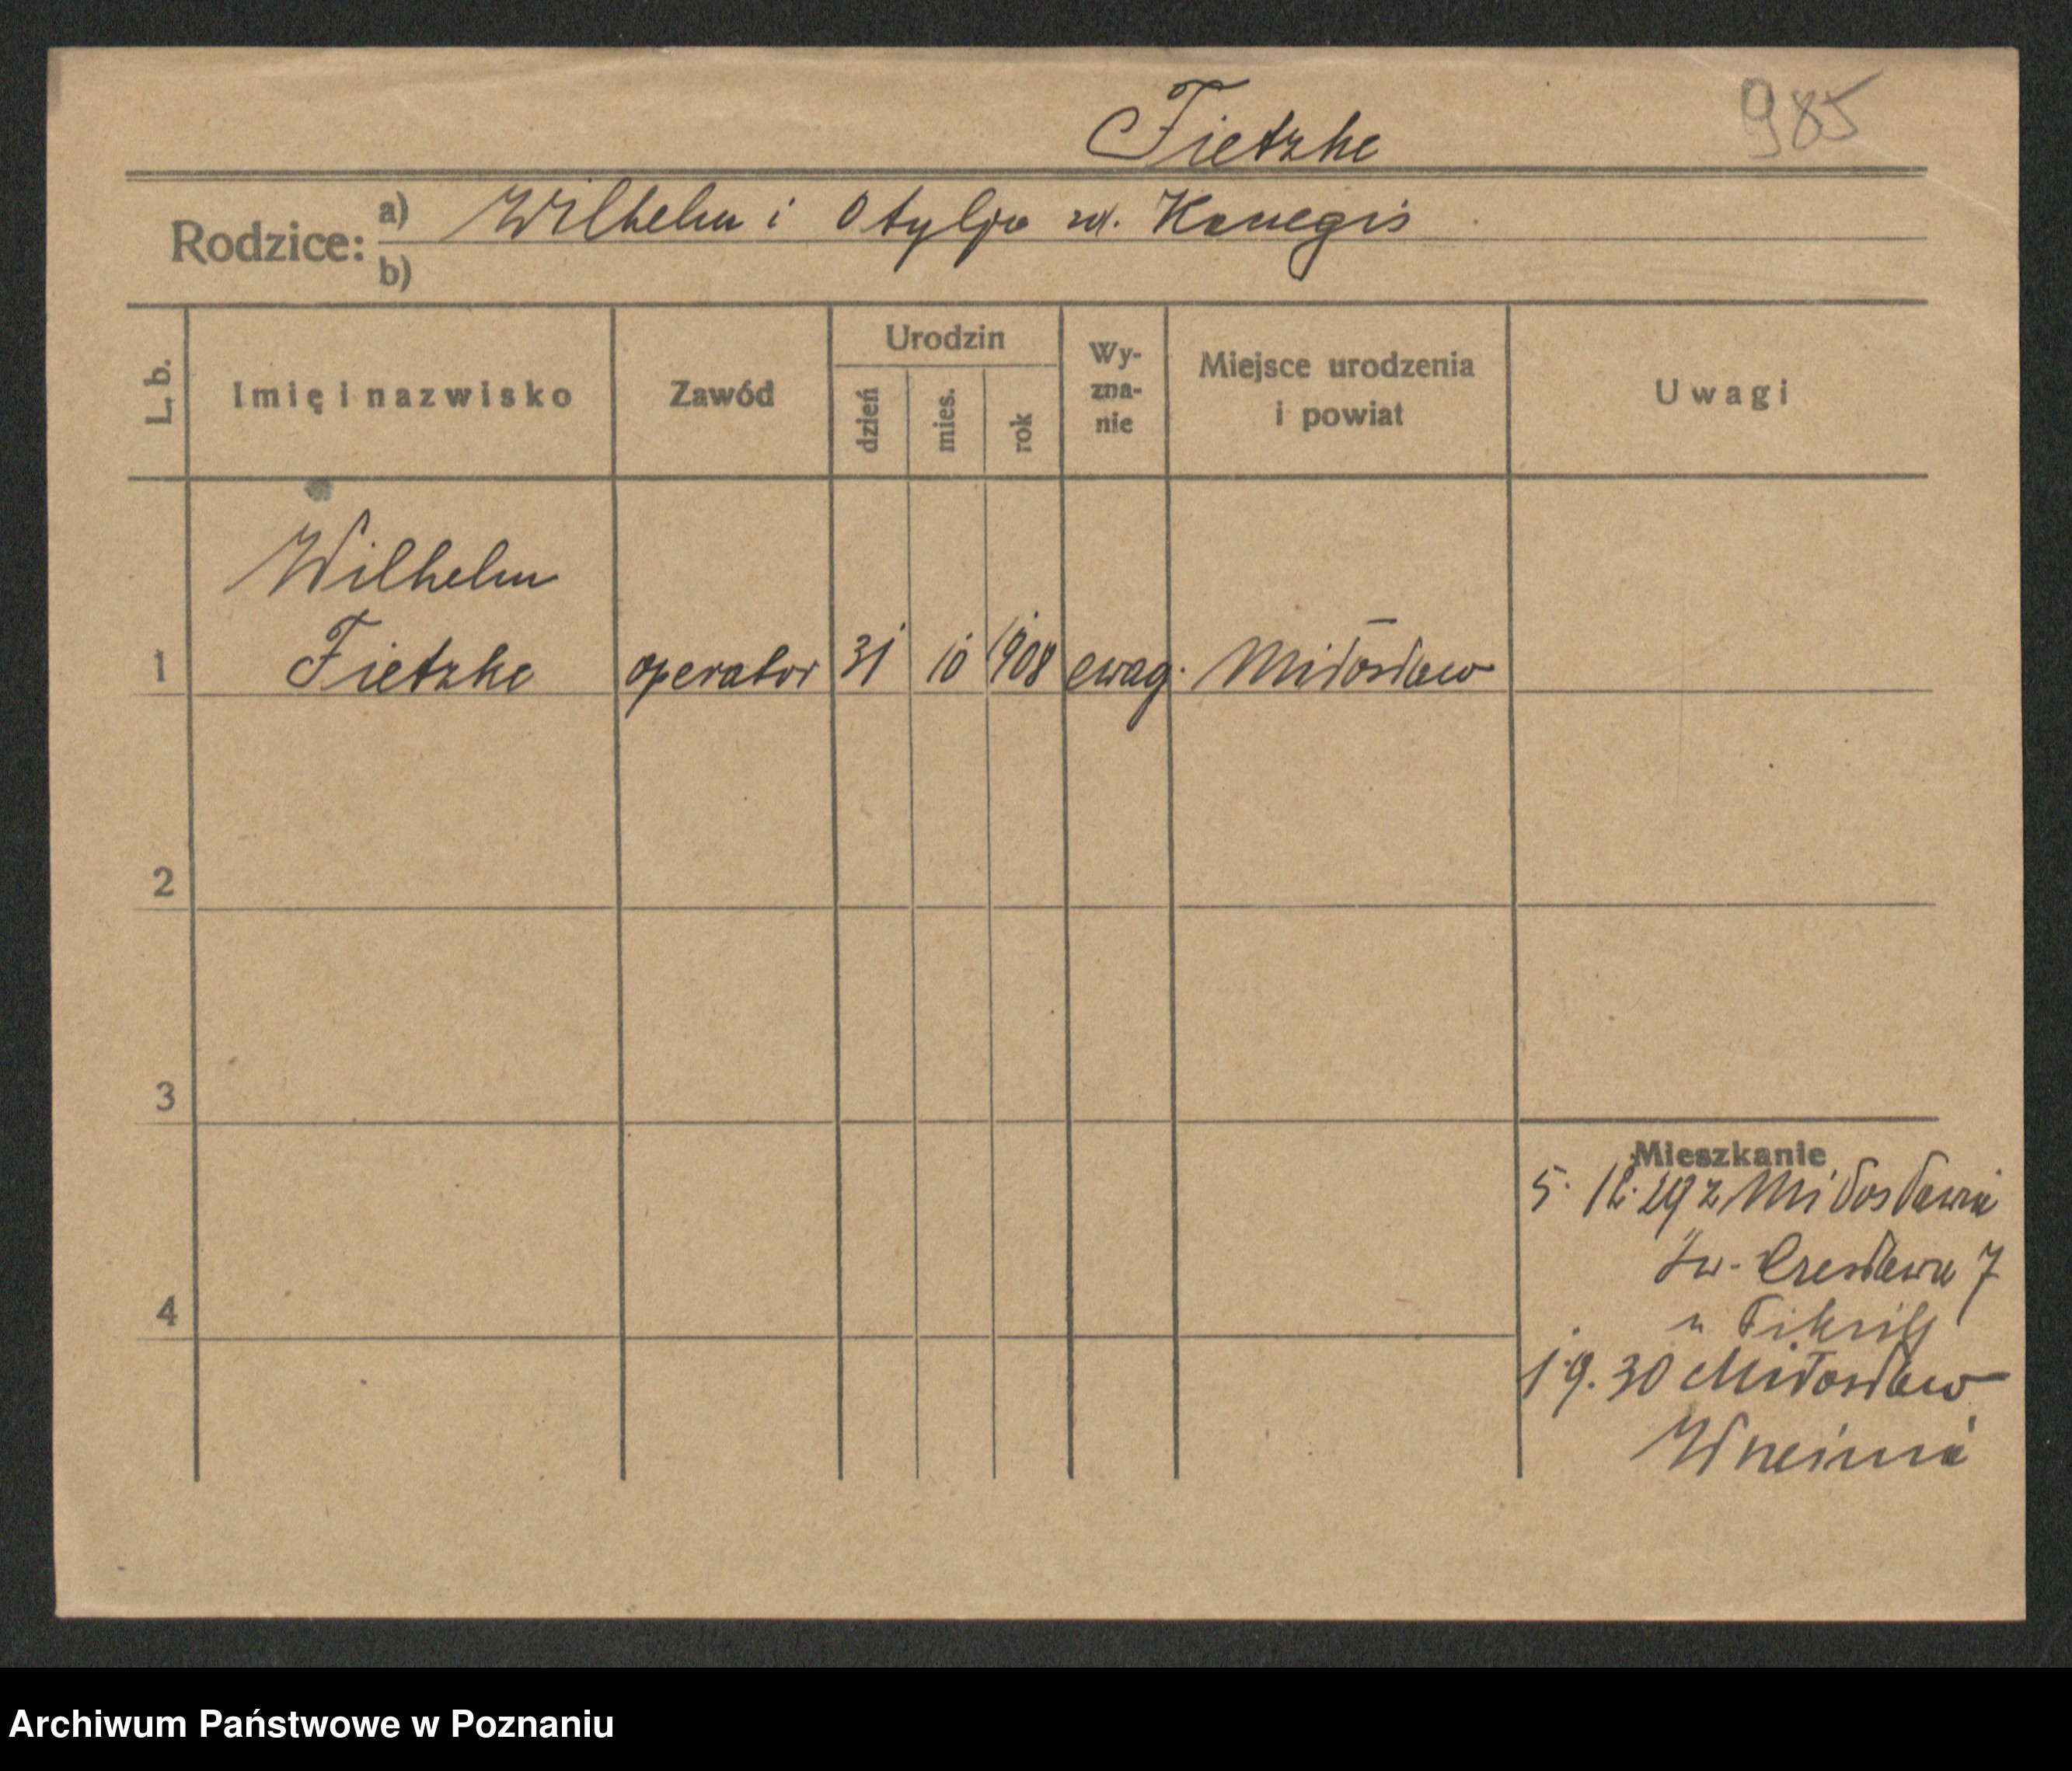 Fietzke
985
Rodzice: a) Wilhelm i Otylja zd. Kanegis
b)
L. b.
Imię i nazwisko
Zawód
Urodzin
dzień
mies.
rok
Wy-
zna-
nie
Miejsce urodzenia
i powiat
Uwagi
Wilhelm
1 Fietzke operator 31 10 1908 ewag. Miłosław
2
3
4
Mieszkanie
5. 12. 29 z Miłosławia
Św. Czesława 7
u
1.9.30 Miłosław
Września
Archiwum Państwowe w Poznaniu